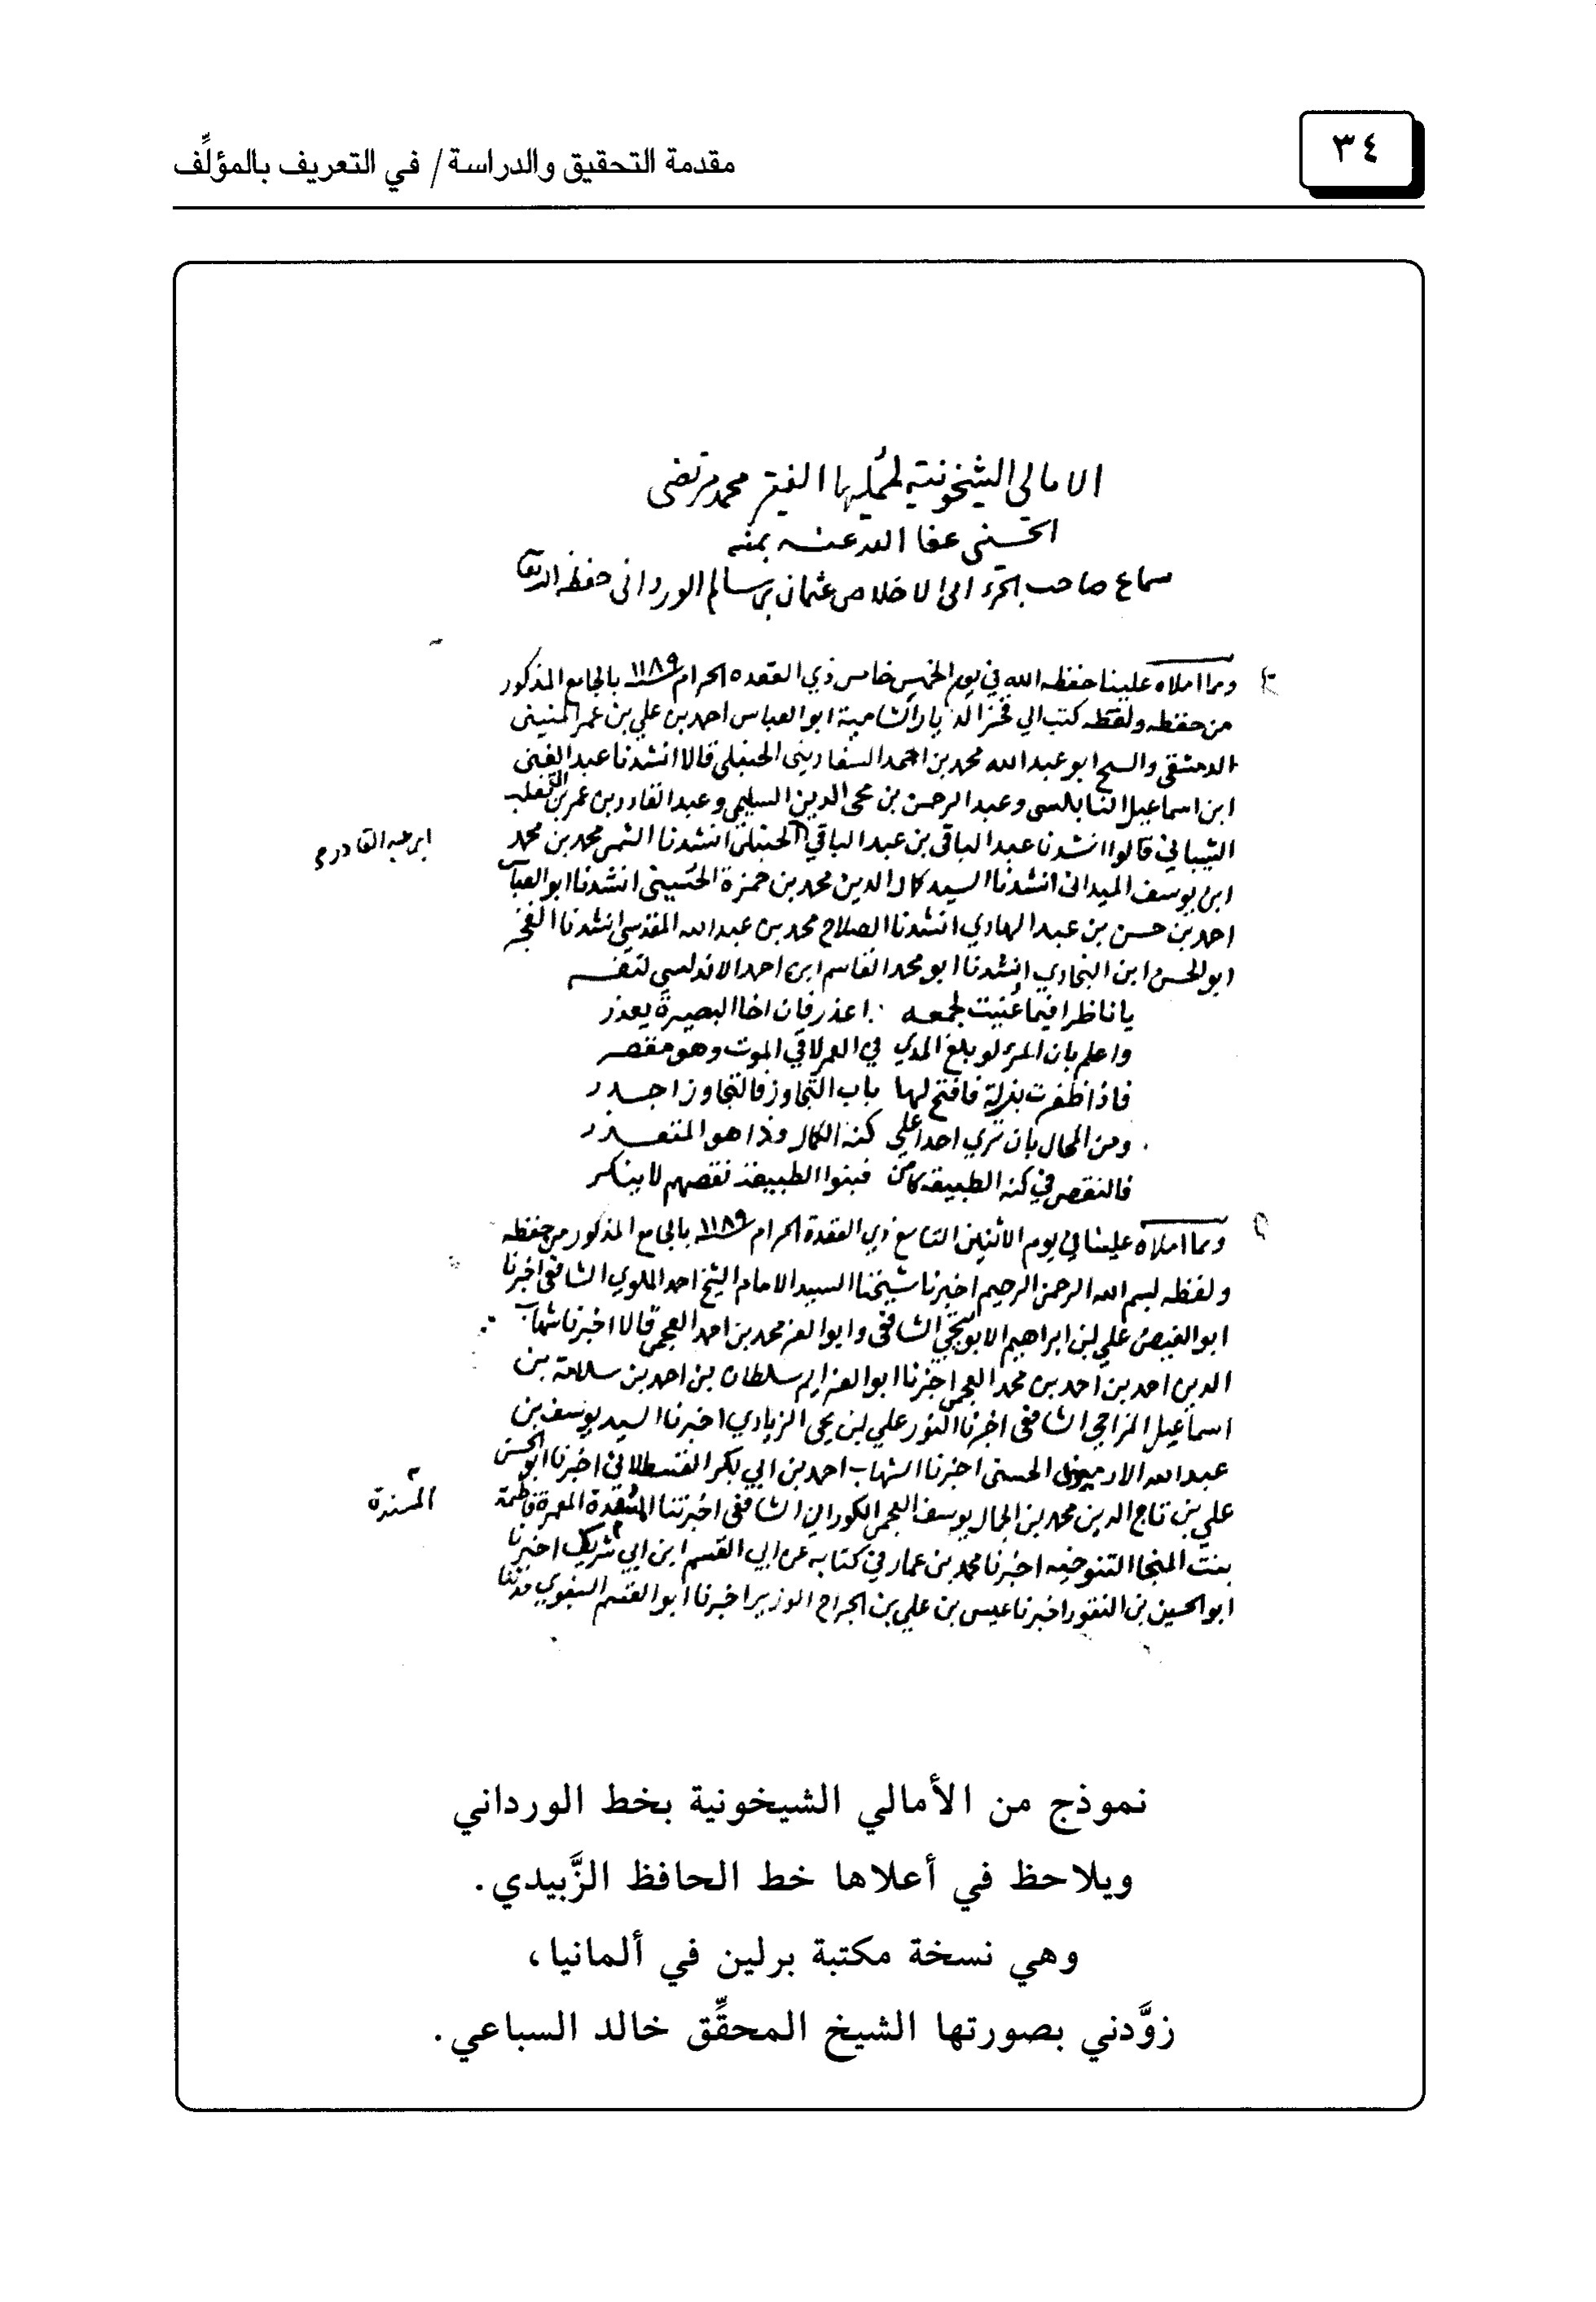 ٣٤
مقدمة التحقيق والدراسة / في التعريف بالمؤلِّف
الامالي الشيخونية لمُمليها الفقير محمد مرتضى
الحسيني عفا الله عنه بمنه
سماع صاحب الجزء ابي الاخلاص عثمان بن سالم الورداني حفظه الله تعا
ومما املاه علينا حفظه الله في يوم الخميس خامس ذي القعده الحرام سنة ١١٨٩ بالجامع المذكور
من حفظه ولفظه كتب الي فخر الديار الشامية ابو العباس احمد بن علي بن عمر المنيني
الدمشقي والشيخ ابو عبد الله محمد بن احمد السفاريني الحنبلي قالا انشدنا عبد الغني
ابن اسماعيل النابلسي وعبد الرحمن بن محي الدين السليمي وعبد القادر بن عمر التغلب
الشيباني قالوا انشدنا عبد الباقي بن عبد الباقي الحنبلي انشدنا الشمس محمد بن محمد
ابن عبد القادر
ابن يوسف الميداني انشدنا السيد كمال الدين محمد بن حمزة الحسيني انشدنا ابو العباس
احمد بن حسن بن عبد الهادي انشدنا الصلاح محمد بن عبد الله المقدسي انشدنا الفخر
ابو الحسن ابن البخاري انشدنا ابو محمد القاسم ابن احمد الاندلسي لنفسه
يا ناظرا فيما عُنيت لجمعه اعذر فان اخا البصيرة يعذر
واعلم بان المرء لو بلغ المدي في العمر لاقي الموت وهو مقصر
فاذا ظفرت بزلة فافتح لها باب التجاوز فالتجاوز اجدر
ومن المحال بان تري احدا علي كنه الكمال وذا هو المتعذر
فالنقص في كنه الطبيعة كامن فبنوا الطبيعة نقصهم لا ينكر
ومما املاه علينا في يوم الاثنين التاسع ذي القعدة الحرام سنة ١١٨٩ بالجامع المذكور من حفظه
ولفظه بسم الله الرحمن الرحيم اخبرنا شيخنا السيد الامام الشيخ احمد الملوي الشافعي اخبرنا
ابو الفيض علي بن ابراهيم الشافعي وابو العز محمد بن احمد العجمي قالا اخبرنا شهاب
الدين احمد بن احمد بن محمد العجمي اخبرنا ابو العزايم سلطان بن احمد بن سلامة بن
اسماعيل المزاحي الشافعي اخبرنا النور علي بن يحي الزيادي اخبرنا السيد يوسف بن
عبد الله الارميوني الحسني اخبرنا الشهاب احمد بن ابي بكر القسطلاني اخبرنا ابو الحسن
علي بن تاج الدين محمد بن الجمال يوسف العجمي الكوراني الشافعي اخبرتنا المعمرة فاطمة
المسندة
بنت المنجا التنوخيه اخبرنا محمد بن عمار في كتابه عن ابي القسم ابن ابي شريك اخبرنا
ابو الحسين بن النقور اخبرنا عيسى بن علي بن الجراح الوزير اخبرنا ابو القسم البغوي حدثنا
نموذج من الأمالي الشيخونية بخط الورداني
ويلاحظ في أعلاها خط الحافظ الزَّبيدي.
وهي نسخة مكتبة برلين في ألمانيا،
زوَّدني بصورتها الشيخ المحقِّق خالد السباعي.